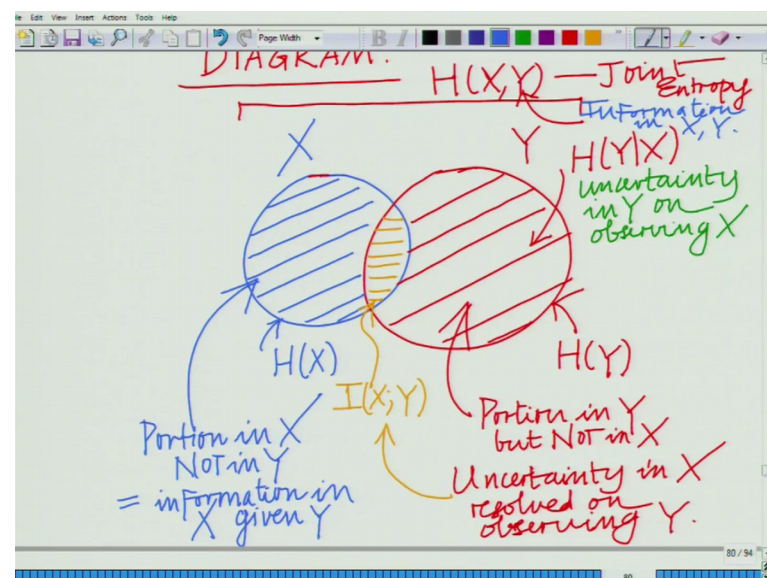 File Edit View Insert Actions Tools Help
Page Width
B I
DIAGRAM.
H(X,Y) — Joint Entropy
Information
in X, Y.
X
Y
H(Y|X)
uncertainty
in Y on
observing X
H(X)
I(X;Y)
H(Y)
Portion in X
NOT in Y
= information in
X given Y
Portion in Y
but NOT in X
Uncertainty in X
resolved on
observing Y.
80 / 94
80